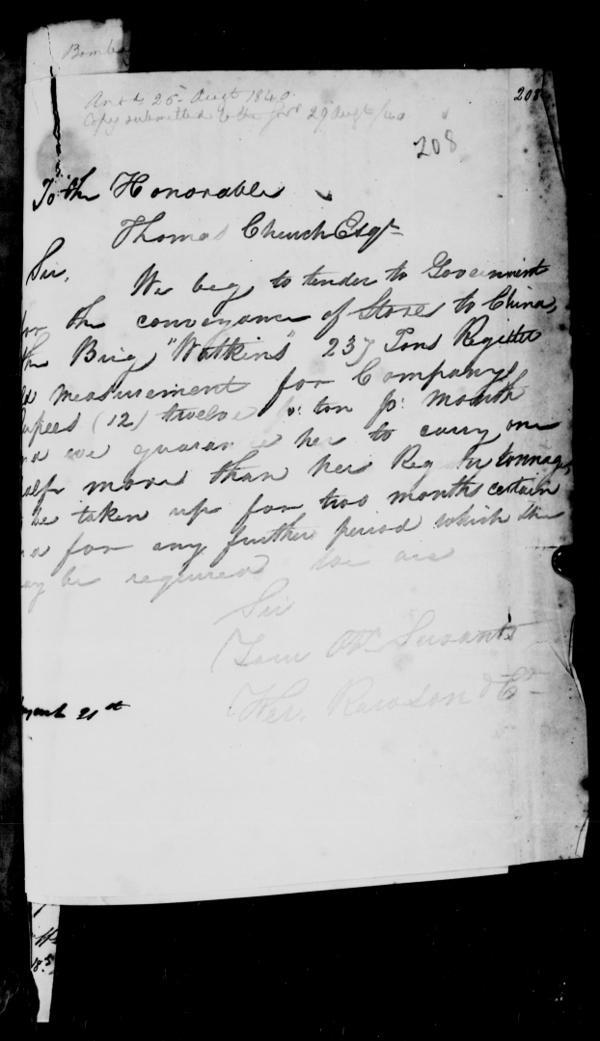 Bombay
Ansd 25th Augt 1840
Copy submitted to the Govr 29 Augt /40
208
208
To the Honorable
Thomas Church Esqr
Sir,
We beg to tender to Government
for the conveyance of Stores to China,
the Brig "Watkins" 237 Tons Register
measurement for Company's
rupees (12) twelve pr: ton pr: month
and we guarantee her to carry one
half more than her Register tonnage,
be taken up for two months certain
and for any further period which she
may be required We are
Sir
Your Obt Servants
Rawson & Co
21st